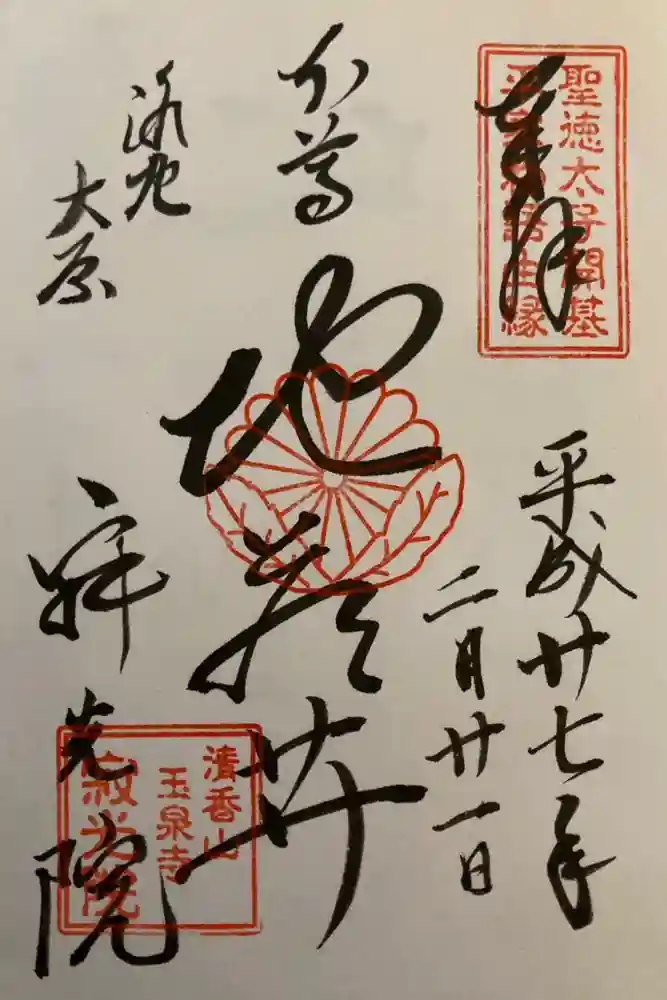 奉拝
聖徳太子開基
平家物語由縁
平成廿七年
二月廿一日
本尊
地蔵𦬇
洛北
大原
寂光院
清香山
玉泉寺
寂光院